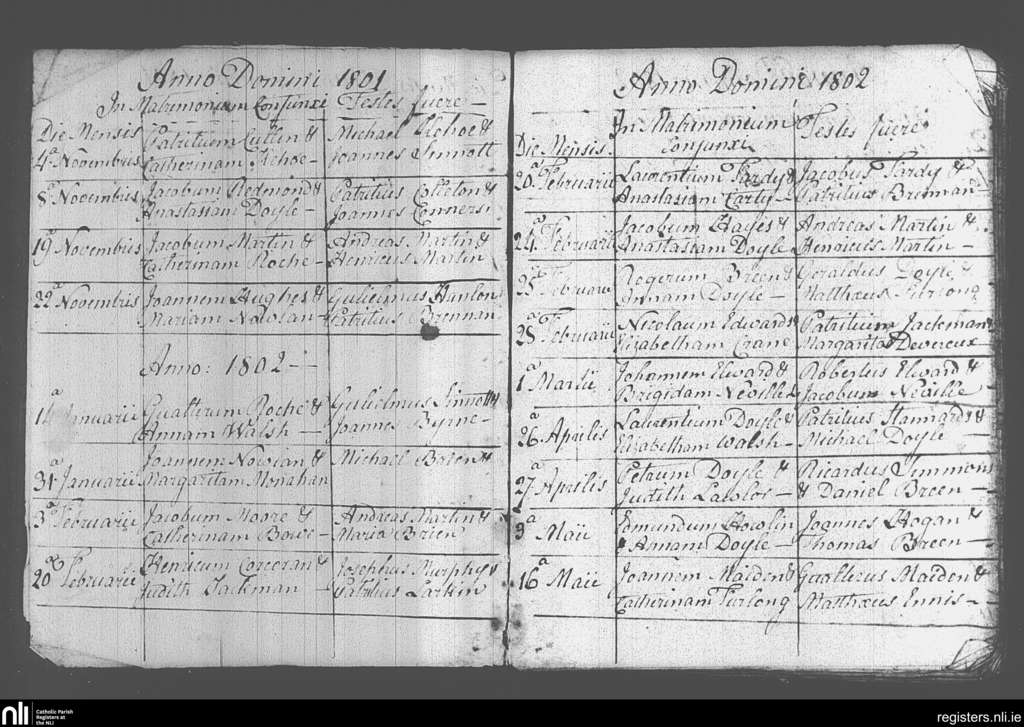 Anno Domini 1801
In Matrimonium Conjunxi Testes fuere
Die Mensis Patritium Cullen & Michael Kehoe &
4ª Novembris Catherinam Kehoe Joannes Sinnott
8ª Novembris Jacobum Redmond & Patritius Colleton &
Anastasiam Doyle Joannes Conners
19ª Novembris Jacobum Martin & Andreas Martin &
Catherinam Roche Henricus Martin
22ª Novembris Joannem Hughes & Gulielmus Hanlon
Mariam Nowlan Patritius Brennan
Anno: 1802
14ª Januarii Gualterum Roche & Gulielmus Sinnott &
Annam Walsh Joannes Byrne
Joannem Nowlan & Michael Brien &
31ª Januarii Margaritam Monahan
3ª Februarii Jacobum Moore & Andreas Martin &
Catherinam Bowe Maria Brien
20ª Februarii Henricum Corcoran & Josephus Murphy &
Judith Jackman Patritius Larkin
Anno Domini 1802
Die Mensis In Matrimonium Testes fuere
Conjunxi
20ª Februarii Laurentium Fardy & Jacobus Fardy &
Anastasiam Carty Patritius Brennan
24ª Februarii Jacobum Hayes & Andreas Martin &
Anastasiam Doyle Henricus Martin
25ª Februarii Rogerum Breen & Geraldus Doyle &
Annam Doyle Matthæus Furlong
28ª Februarii Nicolaum Edward & Patritium Jackman &
Elizabetham Crane Margarita Devereux
1ª Martii Johannem Elward & Robertus Elward &
Brigidam Neville Jacobum Neville
26ª Aprilis Laurentium Doyle & Patritius Hannard &
Elizabetham Walsh Michael Doyle
27ª Aprilis Petrum Doyle & Ricardus Simmons
Judith Lawlos & Daniel Breen
9ª Maii Edmundum Howlin Joannes Hogan &
& Annam Doyle Thomas Breen
16ª Maii Joannem Maiden & Gualterus Maiden &
Catherinam Furlong Matthæus Ennis
nli Catholic Parish
Registers at
the NLI
registers.nli.ie